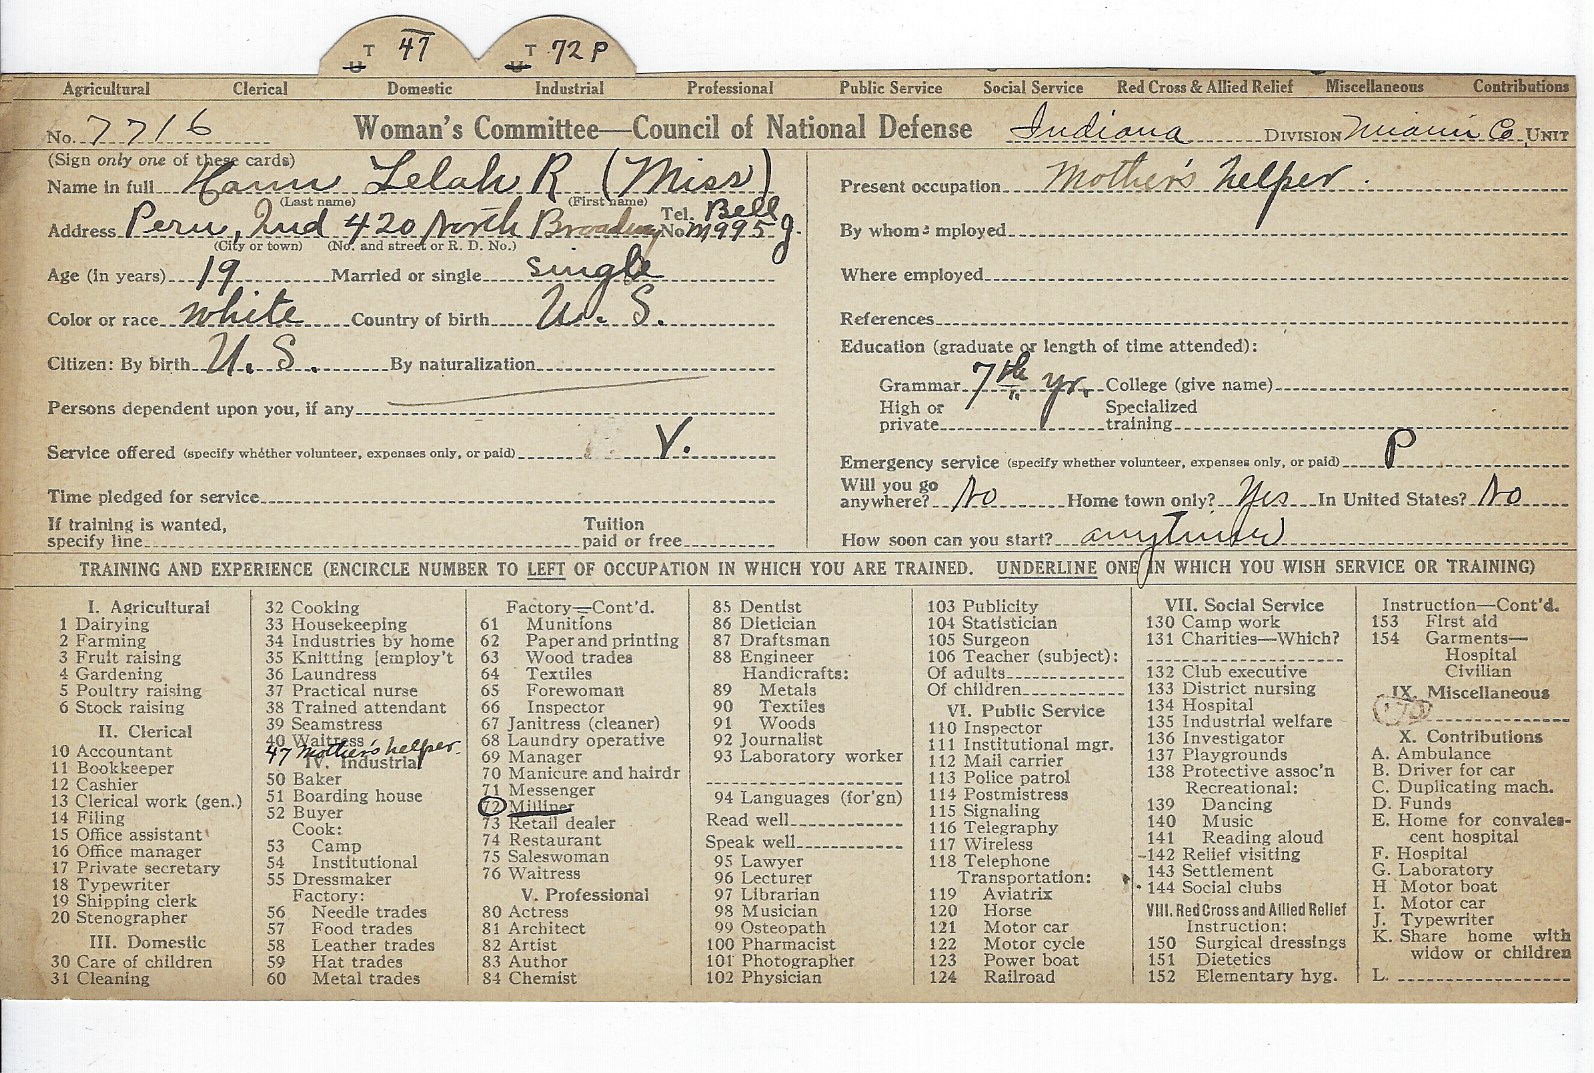 T 47 T 72 P
U U
Agricultural Clerical Domestic Industrial Professional Public Service Social Service Red Cross & Allied Relief Miscellaneous Contributions
No. 7716 Woman's Committee—Council of National Defense Indiana DIVISION Miami Co. UNIT
(Sign only one of these cards)
Name in full Hann Lelah R (Miss)
(Last name) (First name)
Address Peru, Ind 420 North Broadway Tel. No. Bell M995 J.
(City or town) (No. and street or R. D. No.)
Age (in years) 19 Married or single single
Color or race white Country of birth U. S.
Citizen: By birth U. S. By naturalization
Persons dependent upon you, if any
Service offered (specify whether volunteer, expenses only, or paid) V.
Time pledged for service
If training is wanted, Tuition
specify line paid or free
Present occupation Mother's helper.
By whom employed
Where employed
References
Education (graduate or length of time attended):
Grammar 7th yr. College (give name)
High or Specialized
private training
Emergency service (specify whether volunteer, expenses only, or paid) P
Will you go
anywhere? No Home town only? Yes In United States? No
How soon can you start? anytime
TRAINING AND EXPERIENCE (ENCIRCLE NUMBER TO LEFT OF OCCUPATION IN WHICH YOU ARE TRAINED. UNDERLINE ONE IN WHICH YOU WISH SERVICE OR TRAINING)
I. Agricultural
1 Dairying
2 Farming
3 Fruit raising
4 Gardening
5 Poultry raising
6 Stock raising
II. Clerical
10 Accountant
11 Bookkeeper
12 Cashier
13 Clerical work (gen.)
14 Filing
15 Office assistant
16 Office manager
17 Private secretary
18 Typewriter
19 Shipping clerk
20 Stenographer
III. Domestic
30 Care of children
31 Cleaning
32 Cooking
33 Housekeeping
34 Industries by home
35 Knitting [employ't
36 Laundress
37 Practical nurse
38 Trained attendant
39 Seamstress
40 Waitress
47 Mother's helper.
IV. Industrial
50 Baker
51 Boarding house
52 Buyer
Cook:
53 Camp
54 Institutional
55 Dressmaker
Factory:
56 Needle trades
57 Food trades
58 Leather trades
59 Hat trades
60 Metal trades
Factory—Cont'd.
61 Munitions
62 Paper and printing
63 Wood trades
64 Textiles
65 Forewoman
66 Inspector
67 Janitress (cleaner)
68 Laundry operative
69 Manager
70 Manicure and hairdr
71 Messenger
72 Milliner
73 Retail dealer
74 Restaurant
75 Saleswoman
76 Waitress
V. Professional
80 Actress
81 Architect
82 Artist
83 Author
84 Chemist
85 Dentist
86 Dietician
87 Draftsman
88 Engineer
Handicrafts:
89 Metals
90 Textiles
91 Woods
92 Journalist
93 Laboratory worker
94 Languages (for'gn)
Read well
Speak well
95 Lawyer
96 Lecturer
97 Librarian
98 Musician
99 Osteopath
100 Pharmacist
101 Photographer
102 Physician
103 Publicity
104 Statistician
105 Surgeon
106 Teacher (subject):
Of adults
Of children
VI. Public Service
110 Inspector
111 Institutional mgr.
112 Mail carrier
113 Police patrol
114 Postmistress
115 Signaling
116 Telegraphy
117 Wireless
118 Telephone
Transportation:
119 Aviatrix
120 Horse
121 Motor car
122 Motor cycle
123 Power boat
124 Railroad
VII. Social Service
130 Camp work
131 Charities—Which?
132 Club executive
133 District nursing
134 Hospital
135 Industrial welfare
136 Investigator
137 Playgrounds
138 Protective assoc'n
Recreational:
139 Dancing
140 Music
141 Reading aloud
142 Relief visiting
143 Settlement
144 Social clubs
VIII. Red Cross and Allied Relief
Instruction:
150 Surgical dressings
151 Dietetics
152 Elementary hyg.
Instruction—Cont'd.
153 First aid
154 Garments—
Hospital
Civilian
IX. Miscellaneous
X. Contributions
A. Ambulance
B. Driver for car
C. Duplicating mach.
D. Funds
E. Home for convales-
cent hospital
F. Hospital
G. Laboratory
H. Motor boat
I. Motor car
J. Typewriter
K. Share home with
widow or children
L.